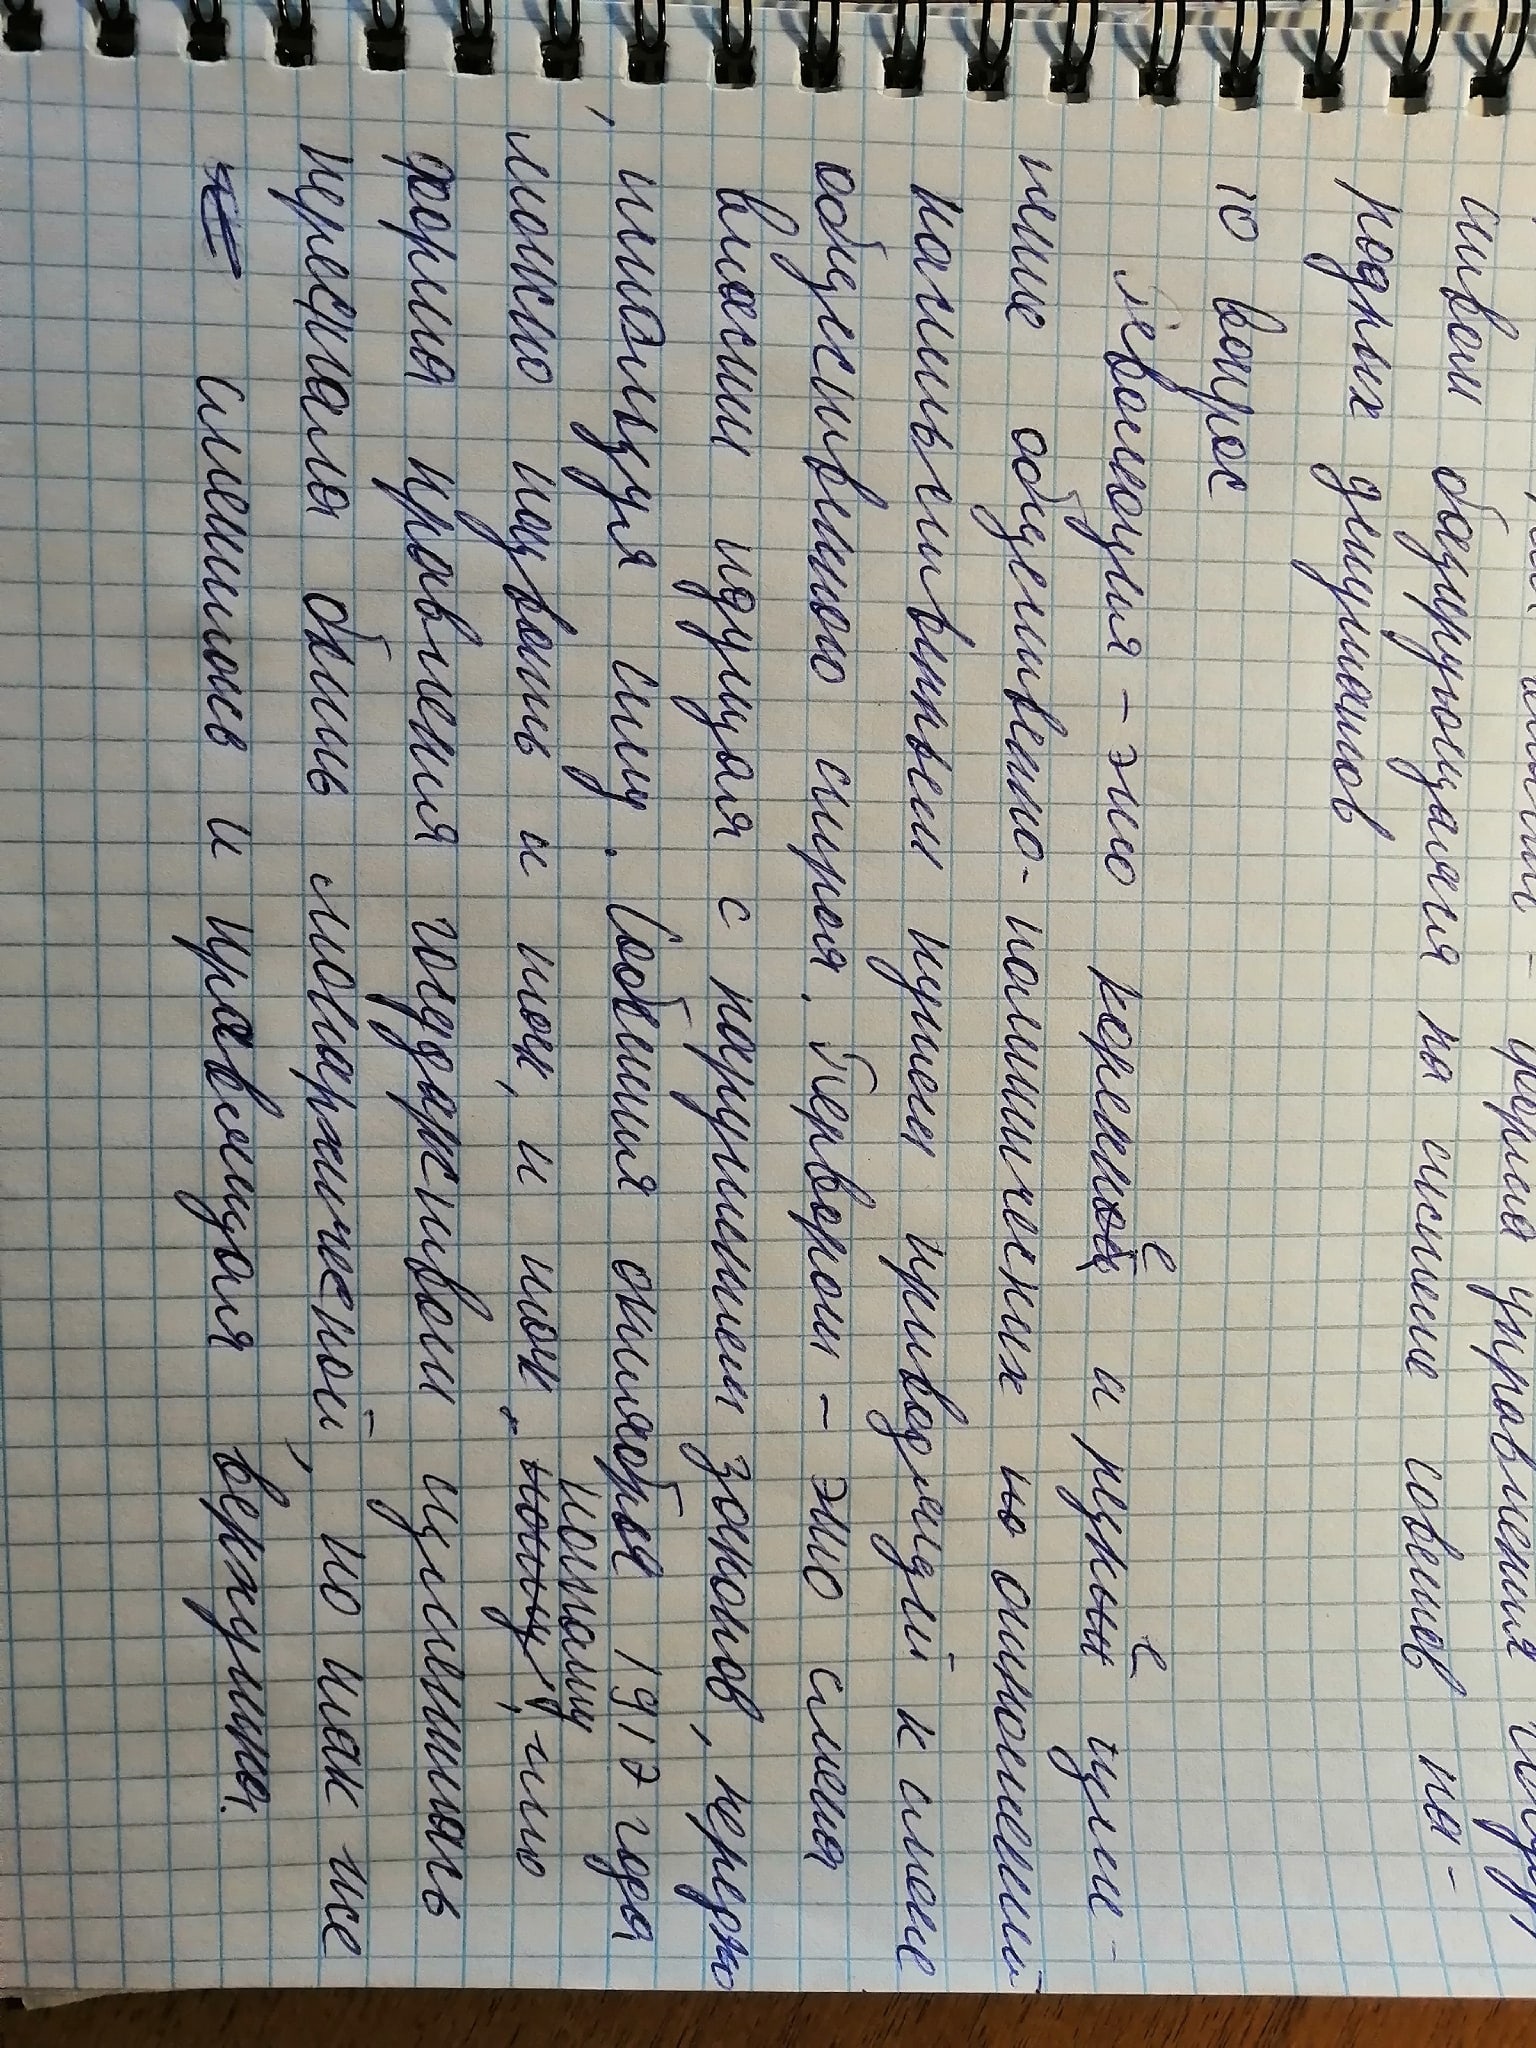 власти - форма управления государ
ством базирующаяся на системе советов на-
родных депутатов
10 вопрос
Революция - это коренное и резкие изме-
нение общественно-политических по отношений
насильственным путем приводящей к смене
общественного строя. Перворот - это смена
власти идущая с нарушением законов, нередко
, используя силу. События октября 1917 года
можно назвать и так, и так, потому, что
форма правления государством изменилась
перестала быть монархической, но так же
сменилась и правящая верхушка.